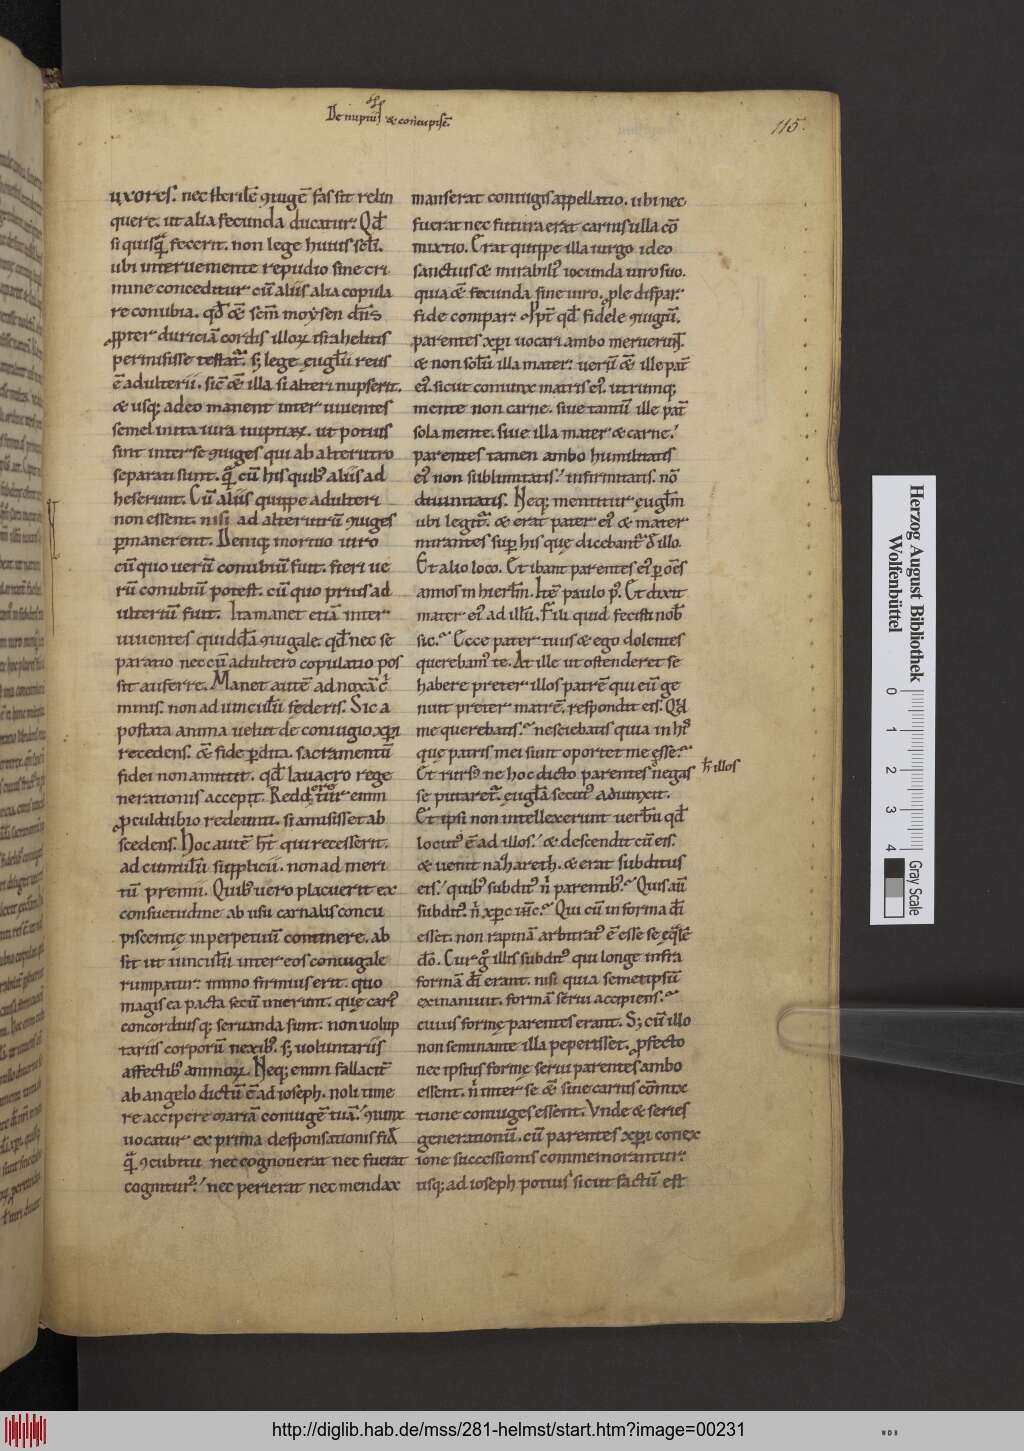 De nuptiis & concupisc̄.
115.
uxores. nec sterilē ꝯiugē fas sit relin
quere. ut alia fecunda ducatur. Qd̄
si quisq̄ fecerit. non lege huius scl̄i.
ubi interueniente repudio sine cri
mine conceditur cū aliis alia copula
re conubia. qd̄ & sc̄m moysen dn̄s
ꝓpter duriciā cordis illoꝝ isrl̄ahelitis
permisisse testat᷑. sꝫ lege euglii reus
ē adulterii. sic̄ & illa si alteri nupserit.
& usqꝫ adeo manent inter uiuentes
semel inita iura nuptiaꝝ. ut potius
sint inter se ꝯiuges qui ab alterutro
separati sunt. q̄ cū his quibꝰ aliis ad
heserunt. Cū aliis quippe adulteri
non essent. nisi ad alterutrū ꝯiuges
ꝑmanerent. Deniqꝫ mortuo uiro
cū quo uerū conubiū fuit. fieri ue
rū conubiū potest. cū quo prius ad
ulteriū fuit. Ita manet etiā inter
uiuentes quiddā ꝯiugale. qd̄ nec se
paratio nec cū adultero copulatio pos
sit auferre. Manet autē ad noxā c̄
minis. non ad uinculū fęderis. Sic a
postata anima uelut de coniugio xp̄i
recedens. & fide ꝑdita. sacramentū
fidei non amittit. qd̄ lauacro rege
nerationis accepit. Redderetur enim
ꝓculdubio redeunti. si amisisset ab
scedens. Hoc autē h̄t qui recesserit.
ad cumulū supplicii. non ad meri
tū premii. Quibꝰ uero placuerit ex
consuetudine ab usu carnalis concu
piscentię in perpetuū continere. ab
sit ut uinculū inter eos coniugale
rumpatur. immo firmius erit. quo
magis ea pacta secū inierunt. quę cariꝰ
concordiusqꝫ seruanda sunt. non uolup
tariis corporū nexibꝰ. sꝫ uoluntariis
affectibꝰ animoꝝ. Neqꝫ enim fallacit᷑
ab angelo dictū ē ad ioseph. noli time
re accipere mariā coniugē tuā. ꝯiunx
uocatur ex prima desponsationis fide
q̄ ꝯcubitu nec cognouerat nec fuerat
cogniturꝰ. nec perierat nec mendax
manserat coniugis appellatio. ubi nec
fuerat nec futura erat carnis ulla cō
mixtio. Erat quippe illa uirgo. ideo
sanctius & mirabiliꝰ iocunda uiro suo.
quia & fecunda sine uiro. ꝓle dispar.
fide compar. Ppt̄ qd̄ fidele ꝯiugiū.
parentes xp̄i uocari ambo meruerunt.
& non solū illa mater. uerū & ille pat᷑
eiꝰ. sicut coniunx matris eiꝰ. utrumqꝫ
mente non carne. siue tantū ille pat᷑
sola mente. siue illa mater & carne.
parentes tamen ambo humilitatis
eiꝰ non sublimitatis. infirmitatis. nō
diuinitatis. Neqꝫ mentitur euglm̄
ubi legit᷑. & erat pater eiꝰ & mater
mirantes sup̄ his que dicebant᷑ de illo.
Et alio loco. Et ibant parentes eiꝰ ꝑ om̄s
annos in hierl̄m. Itē paulo pꝰ. Et dixit
mater eiꝰ ad illū. Fili quid fecisti nob̄
sic. Ecce pater tuus & ego dolentes
querebamꝰ te. At ille ut ostenderet se
habere preter illos patrē qui eū ge
nuit preter matrē. respondit eis. Qd̄
me querebatis. nesciebatis quia in hiꝰ
quę patris mei sunt oportet me esse.
Et rursꝰ ne hoc dicto parentes negas
h̄ illos
se putaret᷑. eugl̄a secutꝰ adiunxit.
Et ipsi non intellexerunt uerbū qd̄
locutꝰ ē ad illos. & descendit cū eis.
& uenit nazareth. & erat subditus
eis. quibꝰ subditꝰ n̄ parentibꝰ. Quis aū
subditꝰ n̄ xp̄c ih̄c. Qui cū in forma dī
esset. non rapinā arbitratꝰ ē esse se eq̄lē
dō. Cur g̊ illis subditꝰ qui longe infra
formā dī erant. nisi quia semetipsū
exinaniuit. formā serui accipiens.
cuius formę parentes erant. Sꝫ cū illo
non seminante illa peperisset. ꝓfecto
nec ipsius formę serui parentes ambo
essent. n̄ inter se & sine carnis cōmix
tione coniuges essent. Vnde & series
generationū. cū parentes xp̄i conex
ione successionis commemorantur.
usqꝫ ad ioseph potius sicut factū est
Herzog August Bibliothek
Wolfenbüttel
0 1 2 3 4
Gray Scale
http://diglib.hab.de/mss/281-helmst/start.htm?image=00231